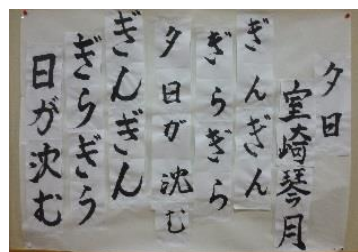 夕日
室崎琴月
ぎんぎん
ぎらぎら
夕日が沈む
ぎんぎん
ぎらぎら
日が沈む